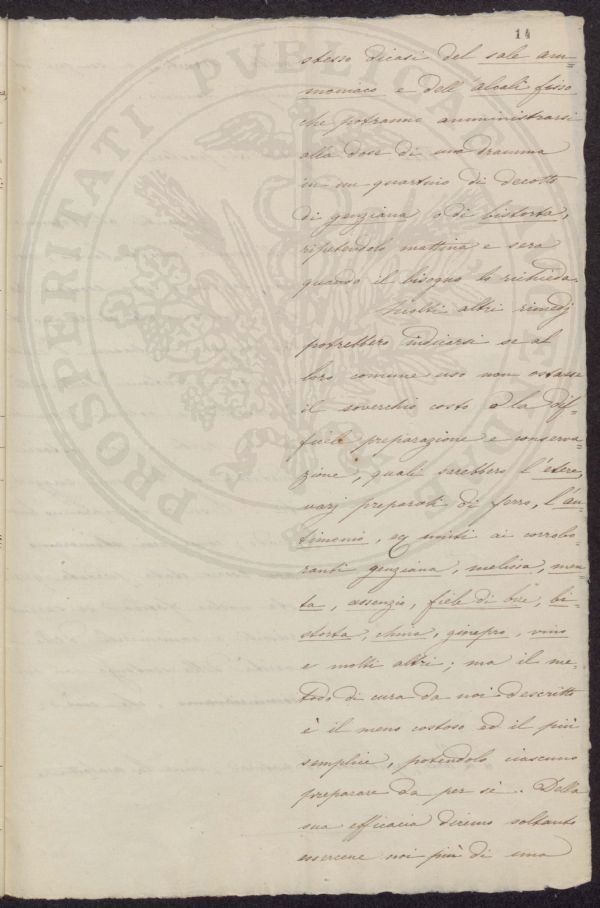 14
stesso dicasi del sale am=
moniaco e dell'alcali fisso
che potranno amministrarsi
alla dose di una dramma
in un quartuio di decotto
di genziana o di bistorta,
ripetendolo mattina e sera
quando il bisogno lo richieda.
Molti altri rimedj
potrebbero indicarsi se al
loro comune uso non ostasse
il soverchio costo o la dif=
ficile preparazione e conserva=
zione, quali sarebbero l'etere,
varj preparati di ferro, l'an=
timonio, uniti ai corrobo=
ranti genziana, melissa, men=
ta, assenzio, fiele di bue, bi=
storta, china, ginepro, vino
e molti altri; ma il me=
todo di cura da noi descritto
è il meno costoso ed il più
semplice, potendolo ciascuno
preparare da per sè. Della
sua efficacia diremo soltanto
esserene noi più di una
PROSPERITATI PUBLICAE